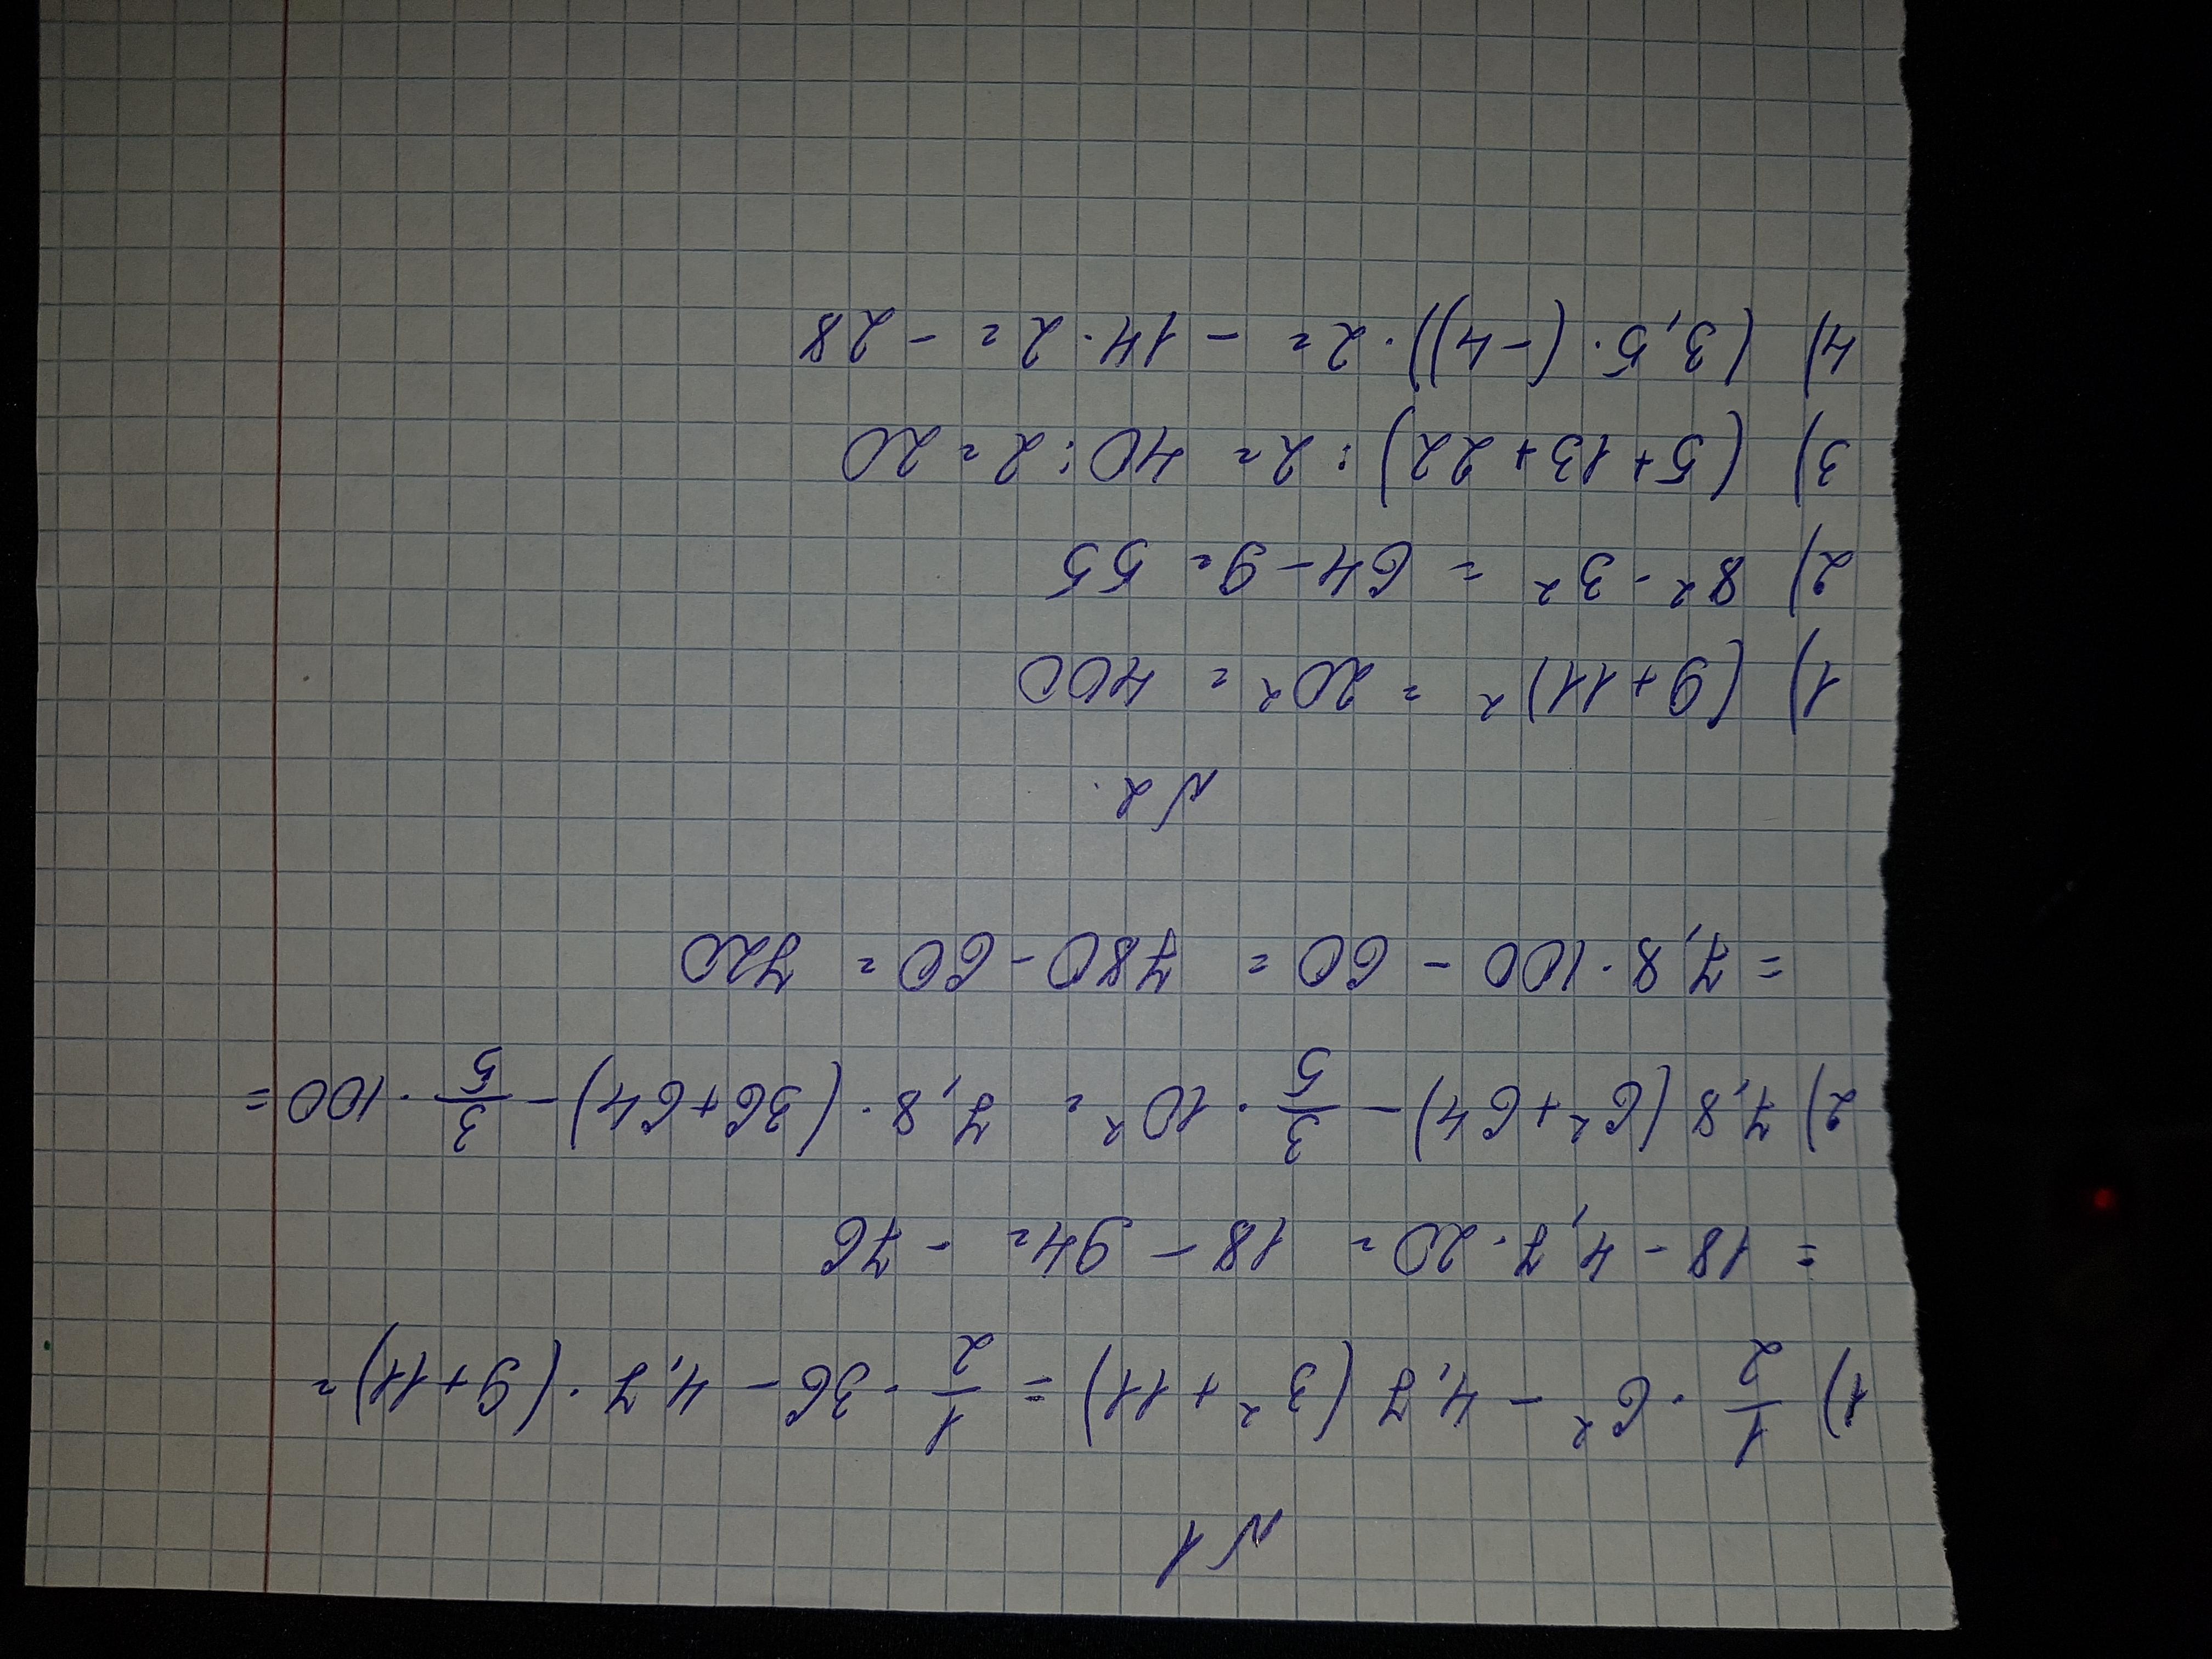 №1
1) 1/2 · 6² - 4,7 (3² + 11) = 1/2 · 36 - 4,7 · (9 + 11) =
= 18 - 4,7 · 20 = 18 - 94 = - 76
2) 7,8 (6² + 64) - 3/5 · 10² = 7,8 · (36 + 64) - 3/5 · 100 =
= 7,8 · 100 - 60 = 780 - 60 = 720
№2.
1) (9 + 11)² = 20² = 400
2) 8² - 3² = 64 - 9 = 55
3) (5 + 13 + 22) : 2 = 40 : 2 = 20
4) (3,5 · (-4)) · 2 = - 14 · 2 = - 28